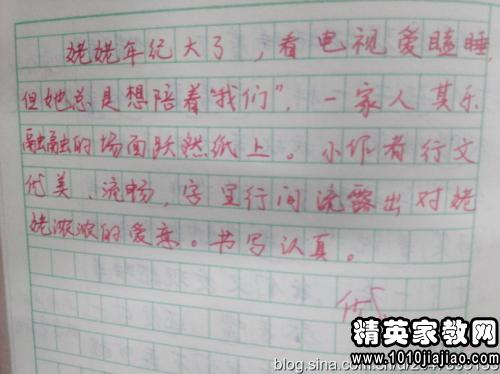 姥姥年纪大了，看电视爱瞌睡，
但她总是想陪着"我们"，一家人其乐
融融的场面跃然纸上。小作者行文
优美、流畅，字里行间流露出对姥
姥浓浓的爱意。书写认真。
优
精英家教网
www.1010jiajiao.com